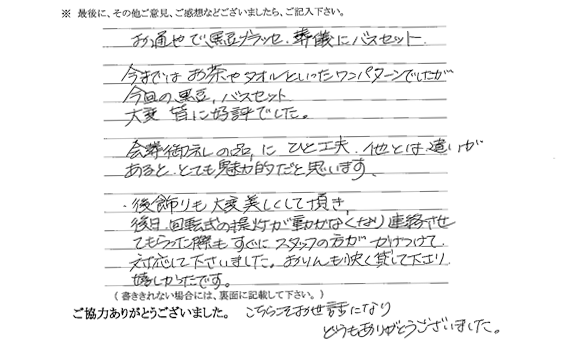 ※ 最後に、その他ご意見、ご感想などございましたら、ご記入下さい。
お通やで黒豆グラッセ、葬儀にバスセット
今までは お茶や タオルといったワンパターンでしたが
今回の黒豆、バスセット
大変 皆に好評でした。
会葬御礼の品に ひと工夫、他とは違いが
あると とても魅力的だと思います。
・後飾りも大変美しくして頂き、
後日、回転式の提灯が動かなくなり連絡させ
てもらった際も すぐに スタッフの方が かけつけて
対応して下さいました。おりんも快く貸して下さり
嬉しかったです。
(書ききれない場合には、裏面に記載して下さい。)
ご協力ありがとうございました。 こちらこそお世話になり
どうもありがとうございました。